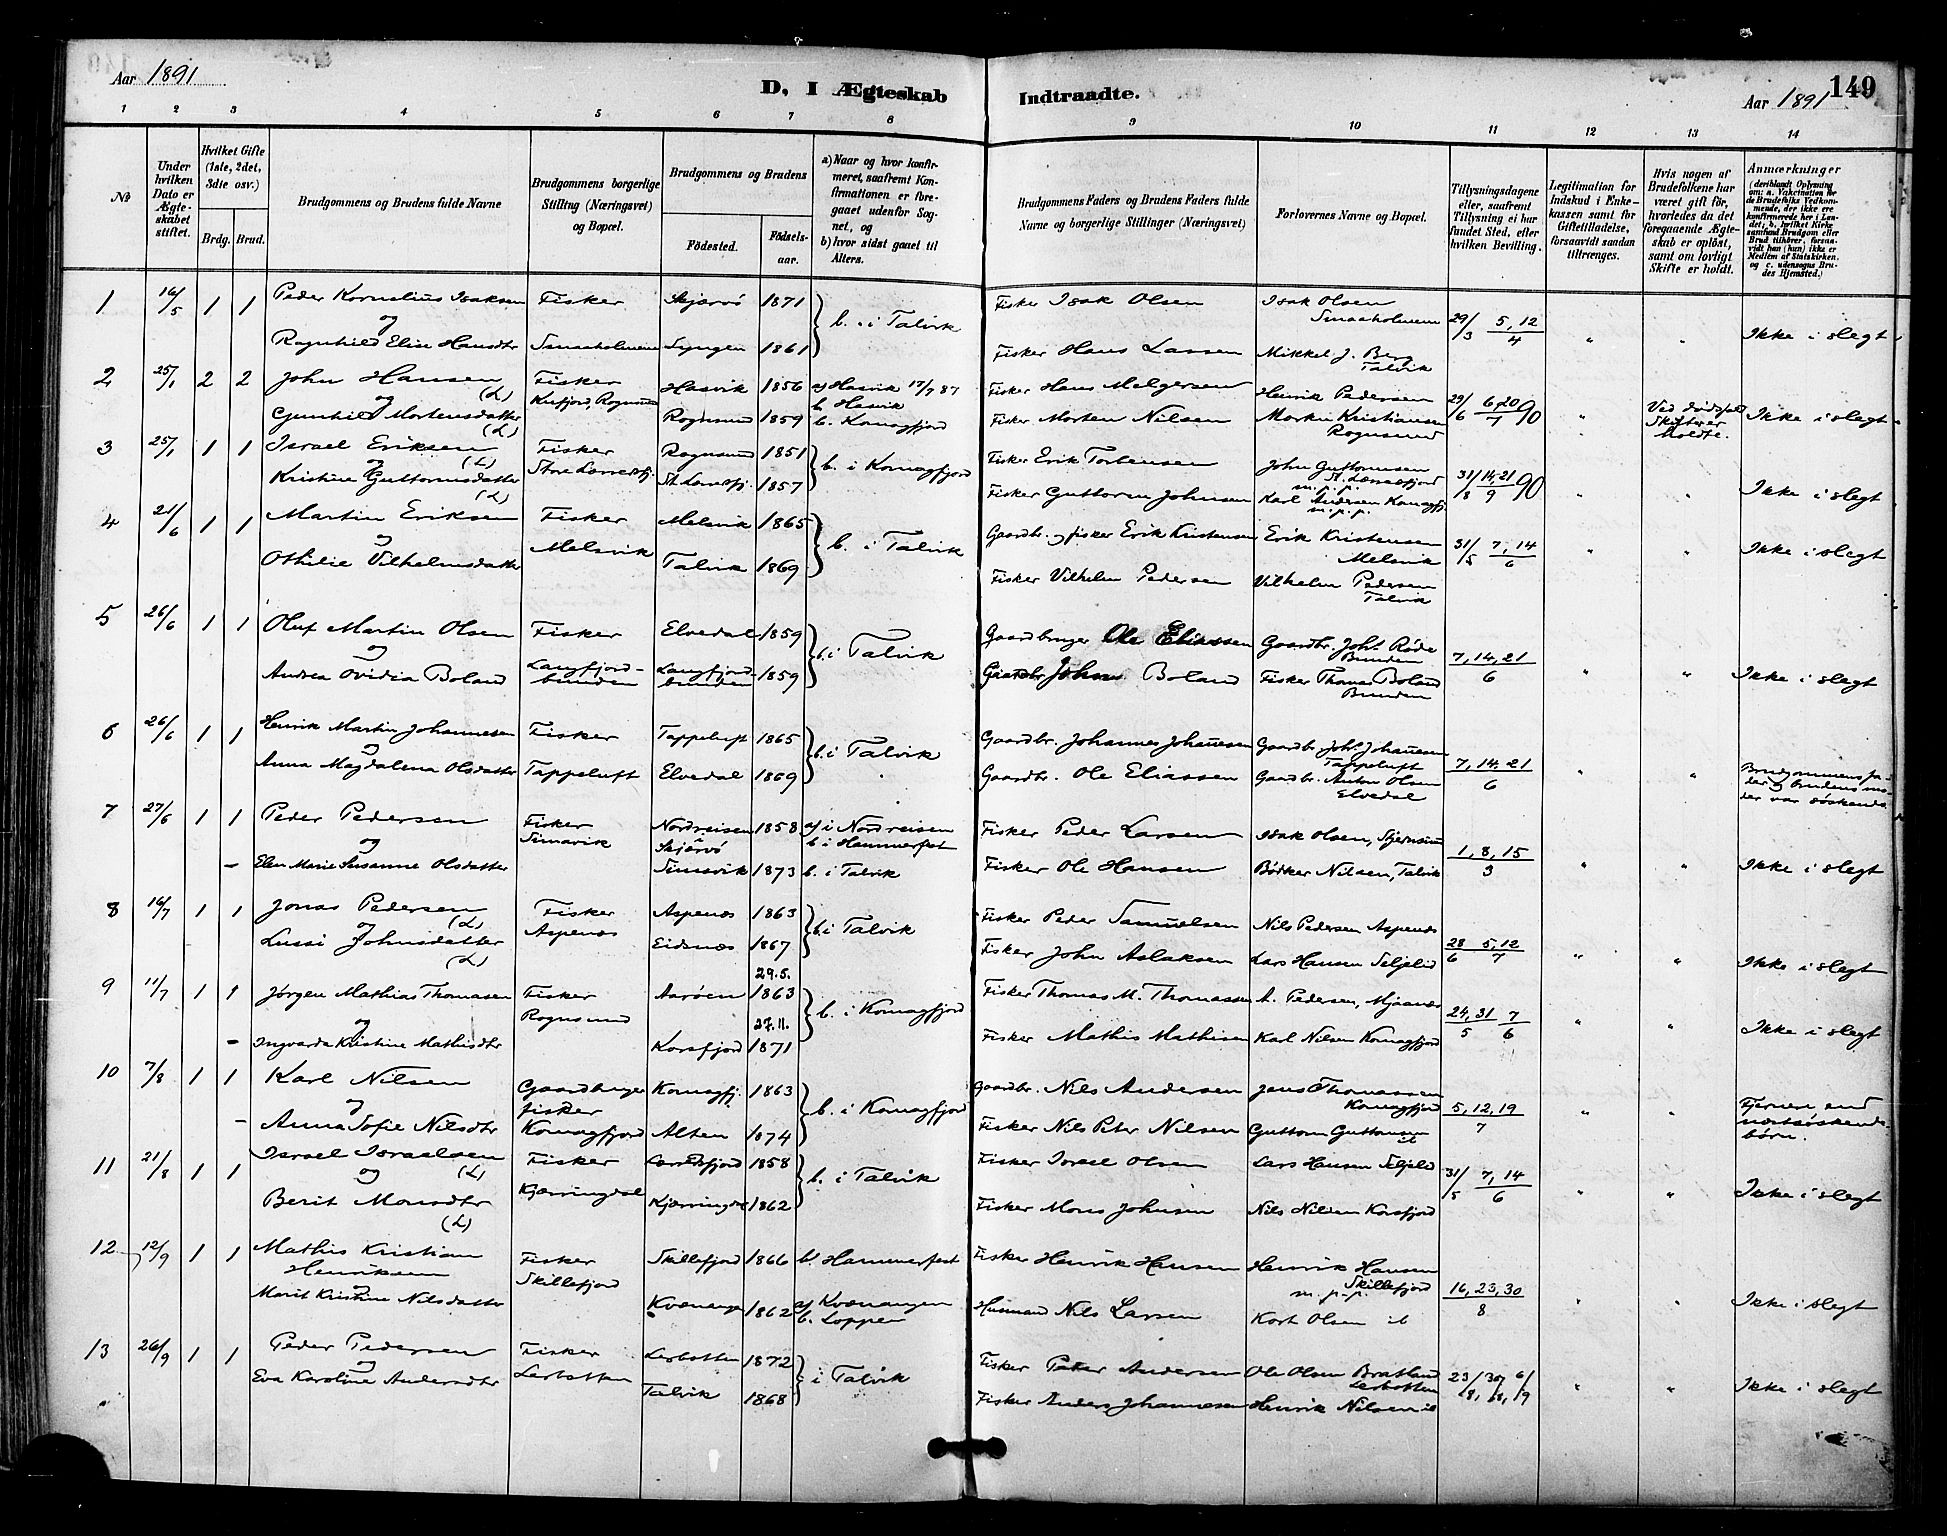 Aar 1891
D, I Ægteskab Indtraadte.
149
Aar 1891
1 2 3 4 5 6 7 8 9 10 11 12 13 14
No
Under hvilken Dato er Ægteskabet stiftet.
Hvilket Gifte (1ste, 2det, 3die osv.)
Brdg. Brud.
Brudgommens og Brudens fulde Navne
Brudgommens borgerlige Stilling (Næringsvei) og Bopæl.
Brudgommens og Brudens
Fødested. Fødselsaar.
a) Naar og hvor konfirmeret, saafremt Konfirmationen er foregaaet udenfor Sognet, og
b) hvor sidst gaaet til Alters.
Brudgommens Faders og Brudens Faders fulde Navne og borgerlige Stillinger (Næringsvei)
Forlovernes Navne og Bopæl.
Tillysningsdagene eller, saafremt Tillysning ei har fundet Sted, efter hvilken Bevilling.
Legitimation for Indskud i Enkekassen samt for Giftetilladelse, forsaavidt saadan tiltrænges.
Hvis nogen af Brudefolkene har været gift før, hvorledes da det foregaaende Ægteskab er opløst, samt om lovligt Skifte er holdt.
Anmærkninger (deriblandt Oplysning om: a. Vakcination for de Brudefolks Vedkommende, der ikke ere konfirmerede her i Landet; b. hvilket Kirkesamfund Brudgom eller Brud tilhører, forsaavidt han (hun) ikke er Medlem af Statskirken. og c. udensogns Brudes Hjemsted.)
1 16/5 1 1 Peder Kornelius Isaksen Fisker Skjærvø 1871 b. i Talvik Fisker Isak Olsen Isak Olsen Smaaholmene 29/3 5, 12/4 " " Ikke i slegt
og
Ragnhild Elise Hansdtr Smaaholmene Lyngen 1861 Fisker Hans Lassen Mikkel J. Berg Talvik
2 25/1 2 2 John Hansen (L) Fisker Hasvik 1856 a) Hasvik 17/7 87 b. Hasvik Fisker Hans Melgersen Henrik Pedersen 29/6 6, 20/7 90 " Ved dødsfald Skifter er holdte. Ikke i slegt
og
Gunhild Mortensdatter (L) Kufjord, Rognsund Rognsund 1859 b. Komagfjord Fisker Morten Nilsen Martin Kristiansen Rognsund
3 25/1 1 1 Israel Eriksen (L) Fisker Rognsund 1851 b. i Komagfjord Fisker Erik Torbensen John Guttormsen St. Lerresfjord m.p.p. 31/8 14, 21/9 90 " " Ikke i slegt
og
Kristine Guttormsdatter (L) Store Lerresfj. St. Lerresfj. 1857 Fisker Guttorm Johnsen Karl Andersen Komagfj. m.p.p.
4 21/6 1 1 Martin Eriksen Fisker Melsvik 1865 b. i Talvik Gaardbr. og fisker Erik Kristensen Erik Kristensen Melsvik 31/5 7, 14/6 " " Ikke i slegt
og
Othilie Vilhelmsdatter Melsvik Talvik 1869 Fisker Vilhelm Pedersen Vilhelm Pedersen Talvik
5 26/6 1 1 Oluf Martin Olsen Fisker Elvedal 1859 b. i Talvik Gaardbruger Ole Eliassen Gaardbr. Joh. Røde Bunden 7, 14, 21/6 " " Ikke i slegt
og
Andrea Ovidia Boland Langfjordbunden Langfjordbunden 1859 Gaardbr John Boland Fisker Thomas Boland Bunden
6 26/6 1 1 Henrik Martin Johannesen Fisker Tappeluft 1865 b. i Talvik Gaardbr. Johannes Johanesen Gaardbr. Joh. Johanesen Tappeluft 7, 14, 21/6 " " Brudgommens fader og brudens moder var søskende
og
Anna Magdalena Olsdatter Tappeluft Elvedal 1869 Gaardbr. Ole Eliassen Gaardbr. Anton Olsen Elvedal
7 27/6 1 1 Peder Pedersen Fisker Nordreisen Skjærvø 1858 a) i Nordreisen b. i Hammerfest Fisker Peder Larsen Isak Olsen, Stjernsund 1, 8, 15/3 " " Ikke i slegt
og
Elen Marie Susanne Olsdatter Simavik Simavik 1873 b. i Talvik Fisker Ole Hansen Bødker Nilsen, Talvik
8 16/7 1 1 Jonas Pedersen (L) Fisker Aspenæs 1863 b. i Talvik Fisker Peder Samuelsen Nils Pedersen Aspenæs 28/6 5, 12/7 " " Ikke i slegt
og
Lussi Johnsdatter (L) Aspenæs Eidsnæs 1867 Fisker John Aslaksen Lars Hansen Seljelid
9 11/7 1 1 Jørgen Mathias Thomasen Fisker Aarøen 29.5. 1863 b. i Komagfjord Fisker Thomas M. Thomassen A. Pedersen, Mjaanæs 24, 31/5 7/6 " " Ikke i slegt
og
Ingvarda Kristine Mathisdtr Rognsund Korsfjord 27.11. 1871 Fisker Mathis Mathisen Karl Nilsen Komagfjord
10 7/8 1 1 Karl Nilsen Gaardbruger fisker Komagfj. 1863 b. i Komagfjord Gaardbr. Nils Andersen Jens Thomassen Komagfjord 5, 12, 19/7 " " Fjernere end næstsøskendebørn.
og
Anna Sofie Nilsdtr Komagfjord Alten 1874 Fisker Nils Peter Nilsen Guttorm Guttormsen ib
11 21/8 1 1 Israel Israelsen (L) Fisker Lerresfjord 1858 b. i Talvik Fisker Israel Olsen Lars Hansen Seljelid 31/5 7, 14/6 " " Ikke i slegt
og
Berit Monsdtr (L) Kjærringdal Kjærringdal 1862 Fisker Mons Johnsen Nils Nilsen Korsfjord
12 12/9 1 1 Mathis Kristian Henriksen Fisker Skillefjord 1866 b. Hammerfest Fisker Henrik Hansen Henrik Hansen Skillefjord m.p.p. 16, 23, 30/8 " " Ikke i slegt
og
Marit Kristine Nilsdatter Skillefjord Kvænangen 1862 a) Kvænangen b. Loppen Husmand Nils Larsen Kort Olsen ib
13 26/9 1 1 Peder Pedersen Fisker Lerbotten 1872 i Talvik Fisker Peter Andersen Ole Olsen Bratland Lerbotten 23/8, 30/8, 6/9 " " Ikke i slegt
og
Eva Karoline Andersdtr Lerbotten Talvik 1868 Fisker Anders Johannesen Henrik Nilsen ib